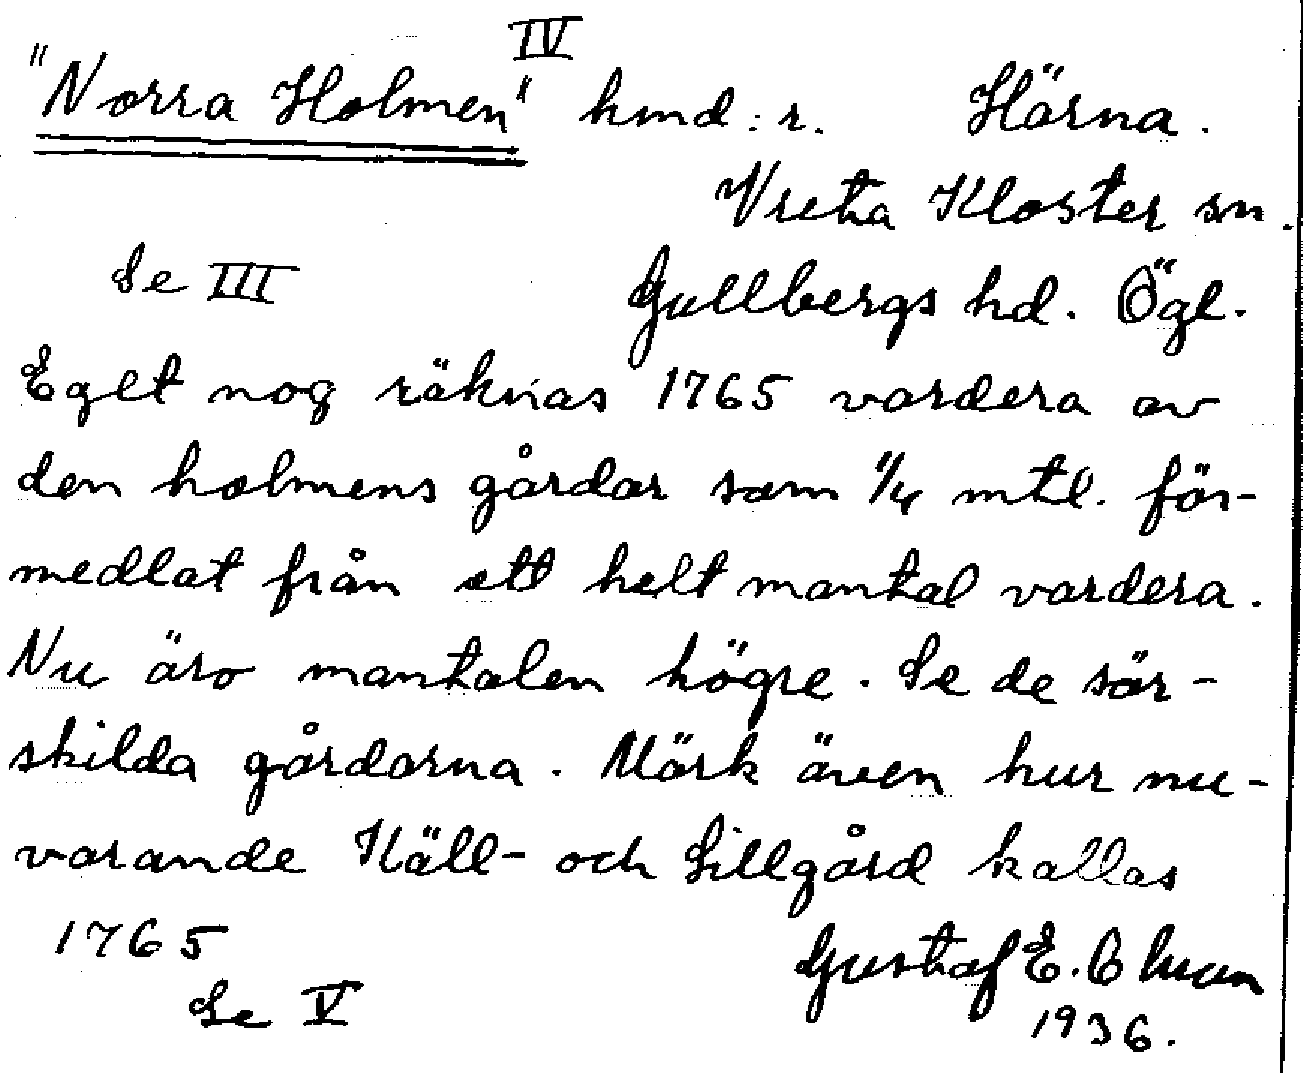 IV
"Norra Holmen" hmd:r. Härna.
Vreta Kloster sn.
Se III Gullbergs hd. Ögl.
Eget nog räknas 1765 vardera av
den holmens gårdar som 1/4 mtl. för-
medlat från ett helt mantal vardera.
Nu äro mantalen högre. Se de sär-
skilda gårdarna. Märk även hur nu-
varande Käll- och Lillgård kallas
1765 Gustaf E.
Se V 1936.